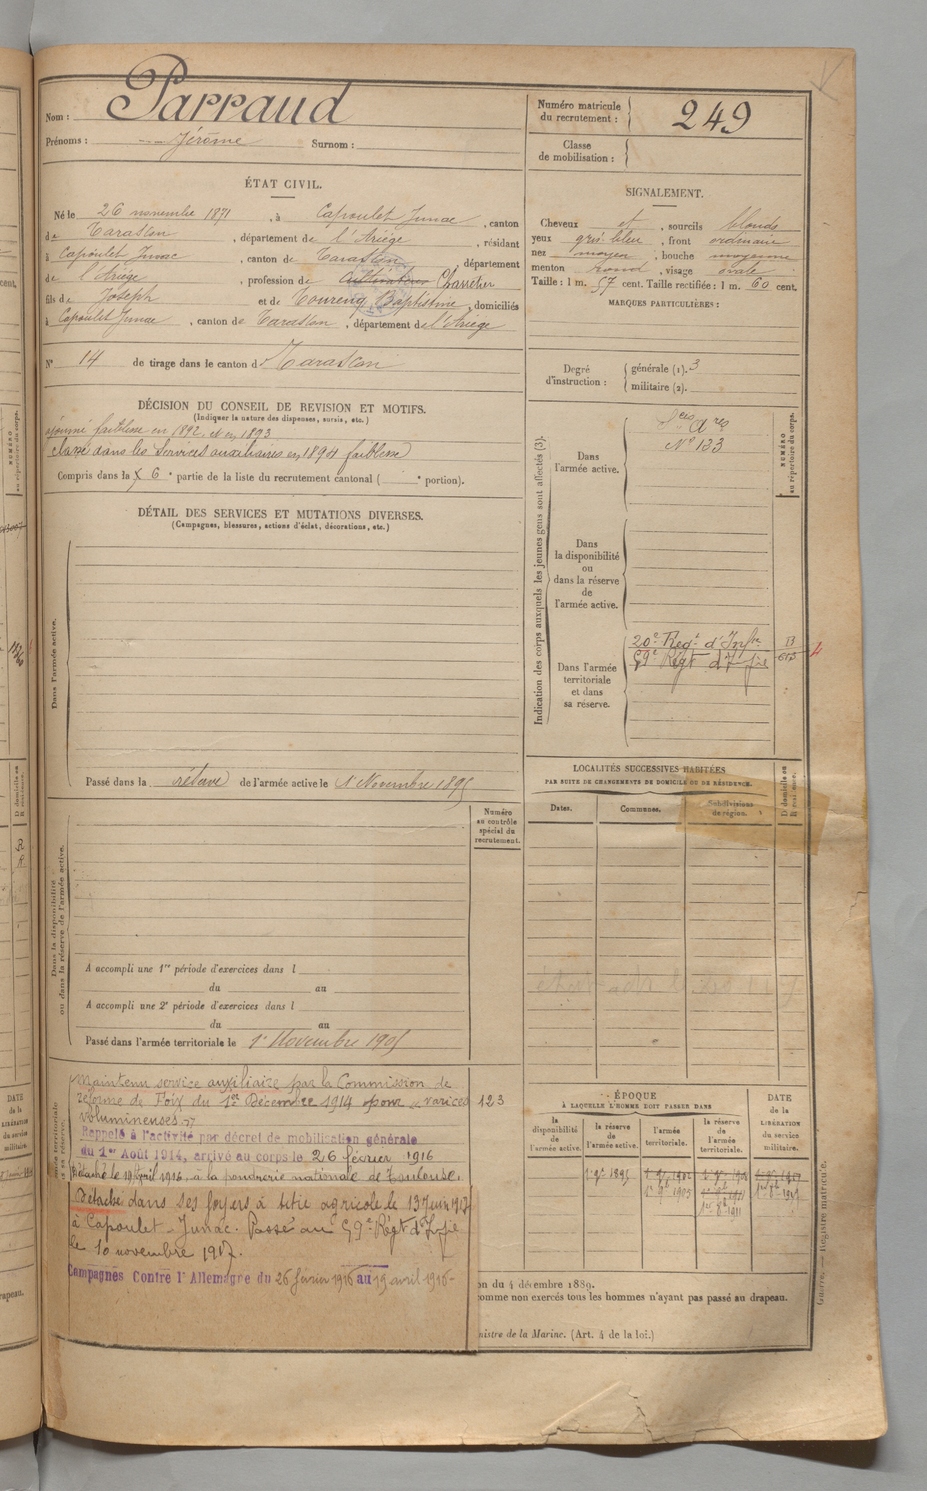 Nom : Parraud
Prénoms : Jérôme Surnom :
Numéro matricule du recrutement : 249
Classe de mobilisation :
ÉTAT CIVIL.
Né le 26 novembre 1871, à Capoulet Junac, canton
de Tarascon, département de l'Ariège, résidant
à Capoulet Junac, canton de Tarascon, département
de l'Ariège, profession de Cultivateur Charretier
fils de Joseph et de Baptistine, domiciliés
à Capoulet Junac, canton de Tarascon, département de l'Ariège
N° 14 de tirage dans le canton de Tarascon
SIGNALEMENT.
Cheveux et, sourcils blonds
yeux gris bleu, front ordinaire
nez moyen, bouche moyenne
menton rond, visage ovale
Taille : 1 m. 57 cent. Taille rectifiée : 1 m. 60 cent.
MARQUES PARTICULIÈRES :
Degré d'instruction : générale (1). 3
militaire (2).
DÉCISION DU CONSEIL DE REVISION ET MOTIFS.
(Indiquer la nature des dispenses, sursis, etc.)
ajourné faiblesse en 1892. et en 1893
classé dans les Services auxiliaires en 1894 faiblesse
Compris dans la 6e partie de la liste du recrutement cantonal ( e portion).
DÉTAIL DES SERVICES ET MUTATIONS DIVERSES.
(Campagnes, blessures, actions d'éclat, décorations, etc.)
Dans l'armée active.
Passé dans la réserve de l'armée active le 1 Novembre 1895
Indication des corps auxquels les jeunes gens sont affectés (3).
NUMÉRO au répertoire du corps.
Dans l'armée active.
Sces Ares
N° 123
Dans la disponibilité ou dans la réserve de l'armée active.
Dans l'armée territoriale et dans sa réserve.
20e Regt d'Infie
59e Régt d'Infie
LOCALITÉS SUCCESSIVES HABITÉES
PAR SUITE DE CHANGEMENTS DE DOMICILE OU DE RÉSIDENCE.
Dates. Communes. Subdivisions de région.
Numéro au contrôle spécial du recrutement.
Dans la disponibilité ou dans la réserve de l'armée active.
A accompli une 1re période d'exercices dans l
du au
A accompli une 2e période d'exercices dans l
du au
Passé dans l'armée territoriale le 1e Novembre 1905
Maintenu service auxiliaire par la Commission de
réforme de Foix du 1er Décembre 1914 pour varices 123
volumineuses
Rappelé à l'activité par décret de mobilisation générale
du 1er Août 1914, arrivé au corps le 26 février 1916
Détaché le 19 avril 1916, à la poudrerie nationale de Toulouse.
Détaché dans ses foyers à titre agricole le 13 Juin 1917
à Capoulet-Junac. Passé au 59e Régt d'Infie
le 10 novembre 1917.
Campagnes Contre l'Allemagne du 26 février 1916 au 19 avril 1916
ÉPOQUE
À LAQUELLE L'HOMME DOIT PASSER DANS
la disponibilité de l'armée active.
la réserve de l'armée active.
l'armée territoriale.
la réserve de l'armée territoriale.
DATE de la LIBÉRATION du service militaire.
1 9bre 1895
1r 9b 1905
1er 8b 1911
on du 4 décembre 1889.
comme non exercés tous les hommes n'ayant pas passé au drapeau.
nistre de la Marine. (Art. 4 de la loi.)
Guerre. — Registre matricule.